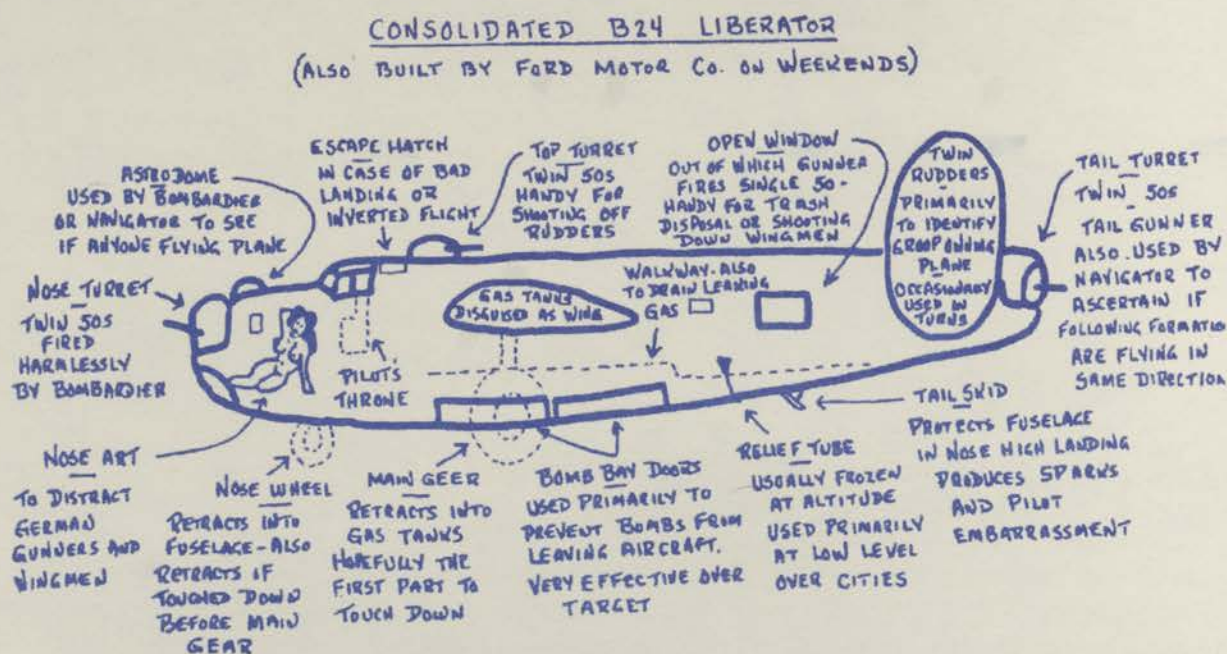 CONSOLIDATED B24 LIBERATOR
(ALSO BUILT BY FORD MOTOR CO. ON WEEKENDS)
NOSE TURRET
TWIN 50S
FIRED
HARMLESSLY
BY BOMBARDIER
ASTRODOME
USED BY BOMBARDIER
OR NAVIGATOR TO SEE
IF ANYONE FLYING PLANE
ESCAPE HATCH
IN CASE OF BAD
LANDING OR
INVERTED FLIGHT
TOP TURRET
TWIN 50S
HANDY FOR
SHOOTING OFF
RUDDERS
OPEN WINDOW
OUT OF WHICH GUNNER
FIRES SINGLE 50-
HANDY FOR TRASH
DISPOSAL OR SHOOTING
DOWN WINGMEN
TWIN
RUDDERS
PRIMARILY
TO IDENTIFY
GROOP OWNING
PLANE
OCCASIONALLY
USED IN
TURNS
TAIL TURRET
TWIN 50S
TAIL GUNNER
ALSO USED BY
NAVIGATOR TO
ASCERTAIN IF
FOLLOWING FORMATION
ARE FLYING IN
SAME DIRECTION
PILOT'S
THRONE
GAS TANKS
DISGUISED AS WING
WALKWAY-ALSO
TO DRAIN LEAKING
GAS
NOSE ART
TO DISTRACT
GERMAN
GUNNERS AND
WINGMEN
NOSE WHEEL
RETRACTS INTO
FUSELAGE-ALSO
RETRACTS IF
TOUCHED DOWN
BEFORE MAIN
GEAR
MAIN GEER
RETRACTS INTO
GAS TANKS
HOPEFULLY THE
FIRST PART TO
TOUCH DOWN
BOMB BAY DOORS
USED PRIMARILY TO
PREVENT BOMBS FROM
LEAVING AIRCRAFT.
VERY EFFECTIVE OVER
TARGET
RELIEF TUBE
USUALLY FROZEN
AT ALTITUDE
USED PRIMARILY
AT LOW LEVEL
OVER CITIES
TAIL SKID
PROTECTS FUSELAGE
IN NOSE HIGH LANDING
PRODUCES SPARKS
AND PILOT
EMBARRASSMENT